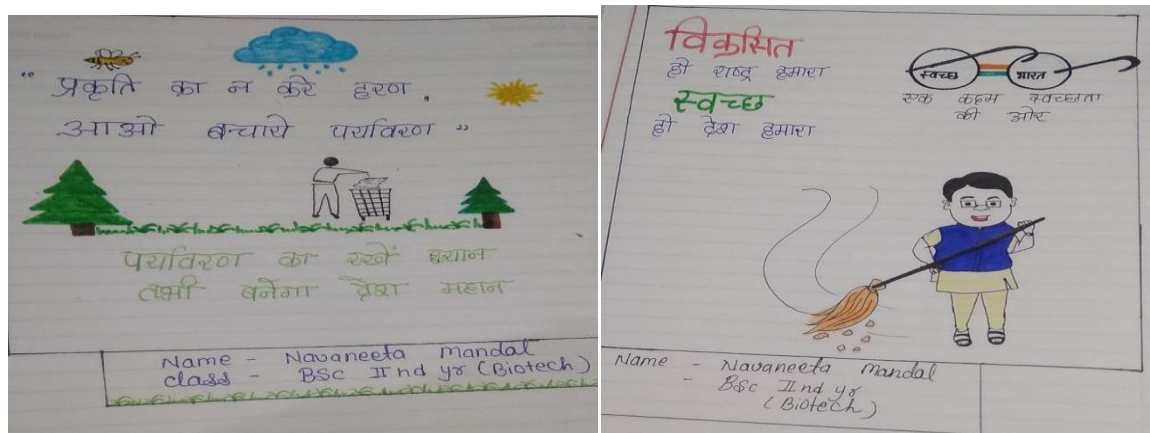 " प्रकृति का न करे हरण .
आओ बचाये पर्यावरण "
पर्यावरण का रखें ध्यान
तभी बनेगा देश महान
Name - Navaneeta mandal
class - BSc II nd yr (Biotech)
विकसित
हो राष्ट्र हमारा
स्वच्छ
हो देश हमारा
स्वच्छ भारत
एक कदम स्वच्छता
की ओर
Name - Navaneeta mandal
- BSc II nd yr
(Biotech)